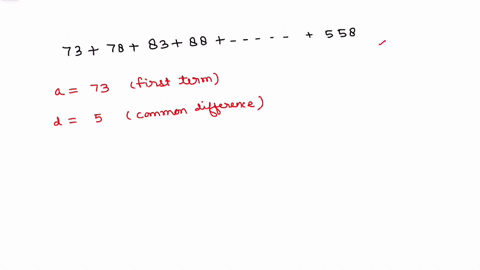 73 + 78 + 83 + 88 + ----- + 558
a = 73 (first term)
d = 5 (common difference)